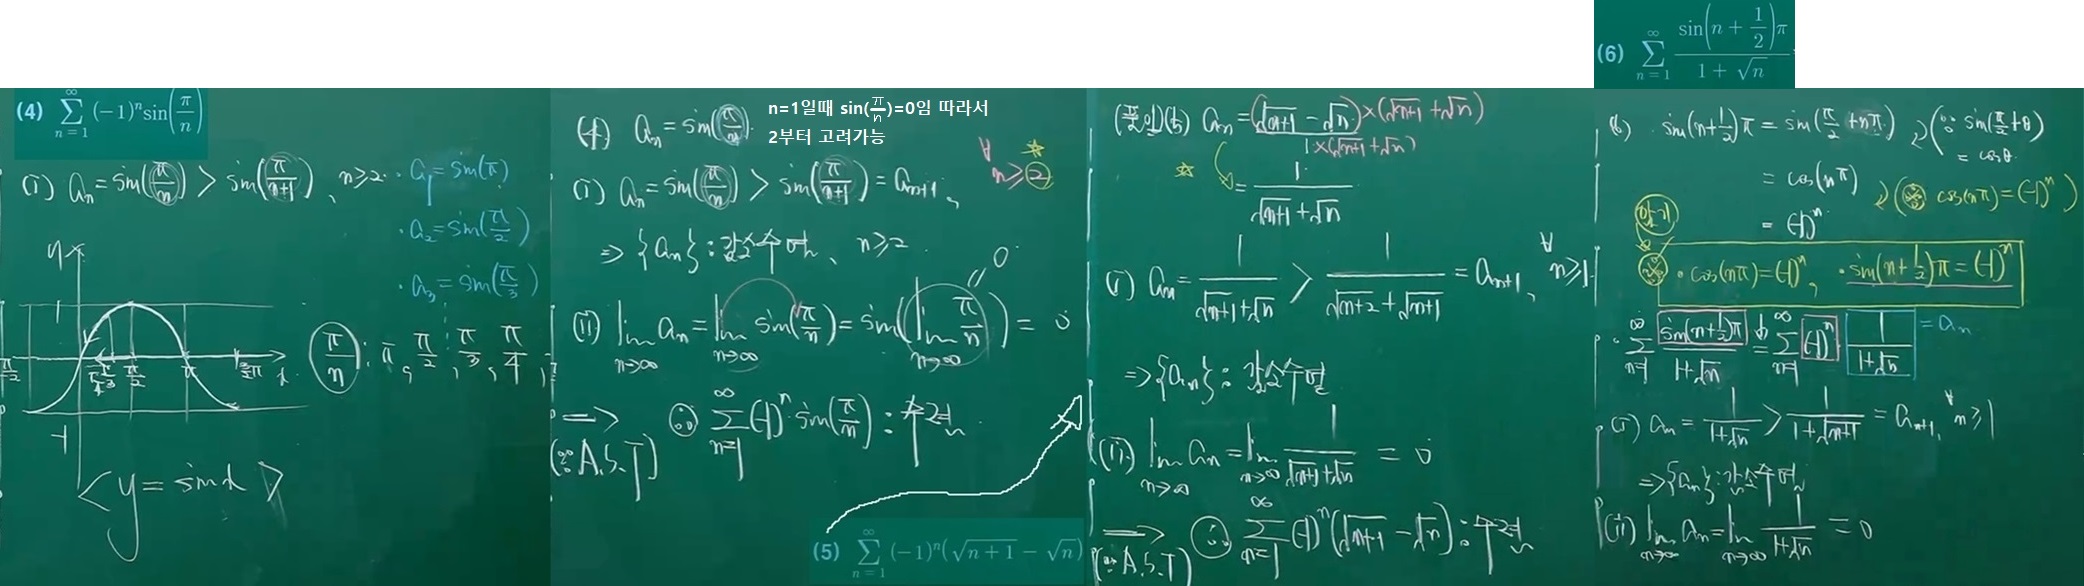 (4) ∞∑n=1 (-1)ⁿ sin(π/n)
(i) aₙ = sin(π/n) > sin(π/(n+1)), n≥2
· a₁ = sin(π)
· a₂ = sin(π/2)
· a₃ = sin(π/3)
y
1
π/4 π/3 π/2 π 3/2π x
-1
π/n : π, π/2, π/3, π/4,
<y = sin x>
(4) aₙ = sin(π/n).
n=1일때 sin(π/n)=0임 따라서
2부터 고려가능
(i) aₙ = sin(π/n) > sin(π/(n+1)) = aₙ₊₁, ∀n≥2
⇒ {aₙ} : 감소수열, n≥2
(ii) lim n→∞ aₙ = lim n→∞ sin(π/n) = sin(lim n→∞ π/n) = 0
0
⇒ (∵ A.S.T) ∴ ∞∑n=1 (-1)ⁿ sin(π/n) : 수렴
(5) ∞∑n=1 (-1)ⁿ(√(n+1) − √n)
(풀이) (5) aₙ = (√(n+1) − √n)×(√(n+1) + √n) / 1×(√(n+1)+√n)
= 1/(√(n+1)+√n)
(i) aₙ = 1/(√(n+1)+√n) > 1/(√(n+2)+√(n+1)) = aₙ₊₁, ∀n≥1
⇒ {aₙ} : 감소수열
(ii) lim n→∞ aₙ = lim n→∞ 1/(√(n+1)+√n) = 0
⇒ (∵ A.S.T) ∴ ∞∑n=1 (-1)ⁿ(√(n+1) − √n) : 수렴
(6) ∞∑n=1 sin(n + 1/2)π / (1 + √n)
(6) sin(n+1/2)π = sin(π/2 + nπ) (∵ sin(π/2+θ)
= cosθ
= cos(nπ) (※ cos(nπ) = (-1)ⁿ)
= (-1)ⁿ
암기
※ · cos(nπ) = (-1)ⁿ, · sin(n+1/2)π = (-1)ⁿ
· ∞∑n=1 sin(n+1/2)π / (1+√n) = ∞∑n=1 (-1)ⁿ 1/(1+√n) = aₙ
(i) aₙ = 1/(1+√n) > 1/(1+√(n+1)) = aₙ₊₁, ∀n≥1
⇒ {aₙ} : 감소수열
(ii) lim n→∞ aₙ = lim n→∞ 1/(1+√n) = 0